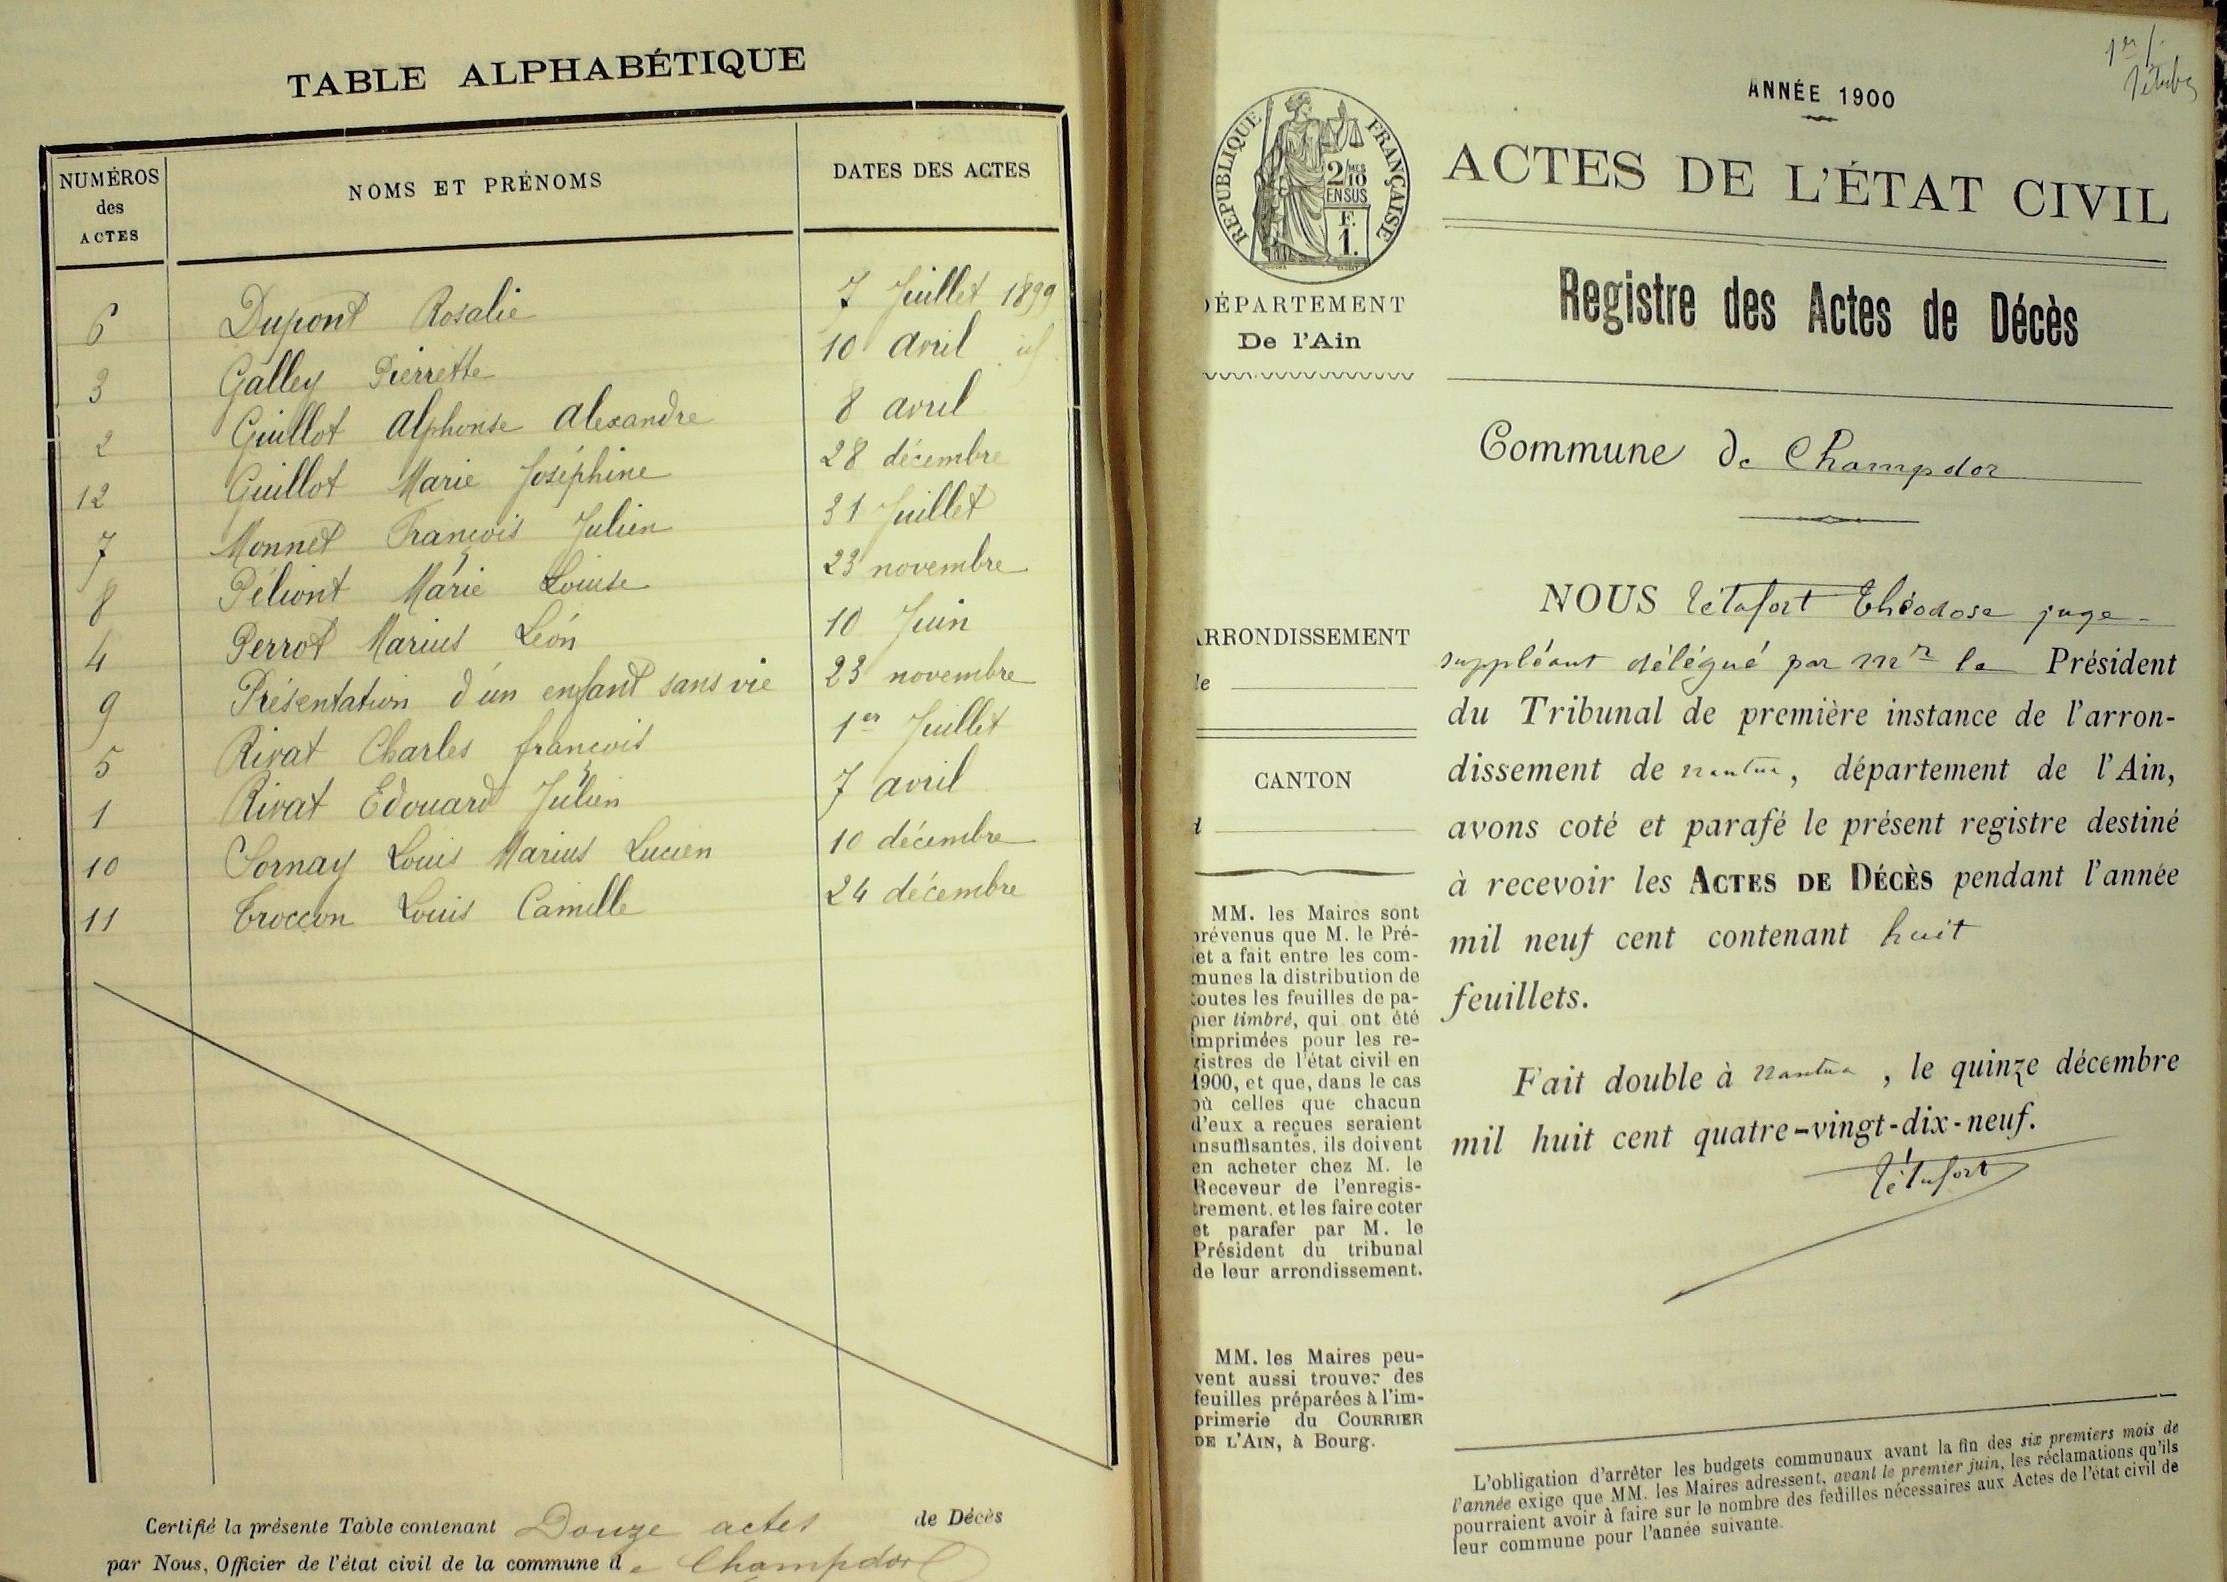 TABLE ALPHABÉTIQUE
NUMÉROS des ACTES
NOMS ET PRÉNOMS
DATES DES ACTES
6 Dupont Rosalie 7 Juillet 1899
3 Galley Pierrette 10 avril id
2 Guillot Alphonse Alexandre 8 avril
12 Guillot Marie Joséphine 28 décembre
7 Monnet François Julien 31 Juillet
8 Péliont Marie Louise 23 novembre
4 Perrot Marius Léon 10 Juin
9 Présentation d'un enfant sans vie 23 novembre
5 Rivat Charles françois 1er Juillet
1 Rivat Edouard Julien 7 avril
10 Sornay Louis Marius Lucien 10 décembre
11 Troccon Louis Camille 24 décembre
Certifié la présente Table contenant Douze actes de Décès
par Nous, Officier de l'état civil de la commune de Champdor
RÉPUBLIQUE FRANÇAISE
2/10 MES
EN SUS
F.
1.
DÉPARTEMENT
De l'Ain
ARRONDISSEMENT
de
CANTON
d
MM. les Maires sont
prévenus que M. le Pré-
fet a fait entre les com-
munes la distribution de
toutes les feuilles de pa-
pier timbré, qui ont été
imprimées pour les re-
gistres de l'état civil en
1900, et que, dans le cas
où celles que chacun
d'eux a reçues seraient
insuffisantes, ils doivent
en acheter chez M. le
Receveur de l'enregis-
trement, et les faire coter
et parafer par M. le
Président du tribunal
de leur arrondissement.
MM. les Maires peu-
vent aussi trouver des
feuilles préparées à l'im-
primerie du COURRIER
DE L'AIN, à Bourg.
1er f.
ANNÉE 1900
ACTES DE L'ÉTAT CIVIL
Registre des Actes de Décès
Commune de Champdor
NOUS Tétafort Théodose juge-
suppléant délégué par Mr le Président
du Tribunal de première instance de l'arron-
dissement de Nantua, département de l'Ain,
avons coté et parafé le présent registre destiné
à recevoir les ACTES DE DÉCÈS pendant l'année
mil neuf cent contenant huit
feuillets.
Fait double à Nantua, le quinze décembre
mil huit cent quatre-vingt-dix-neuf.
Tétafort
L'obligation d'arrêter les budgets communaux avant la fin des six premiers mois de
l'année exige que MM. les Maires adressent, avant le premier juin, les réclamations qu'ils
pourraient avoir à faire sur le nombre des feuilles nécessaires aux Actes de l'état civil de
leur commune pour l'année suivante.